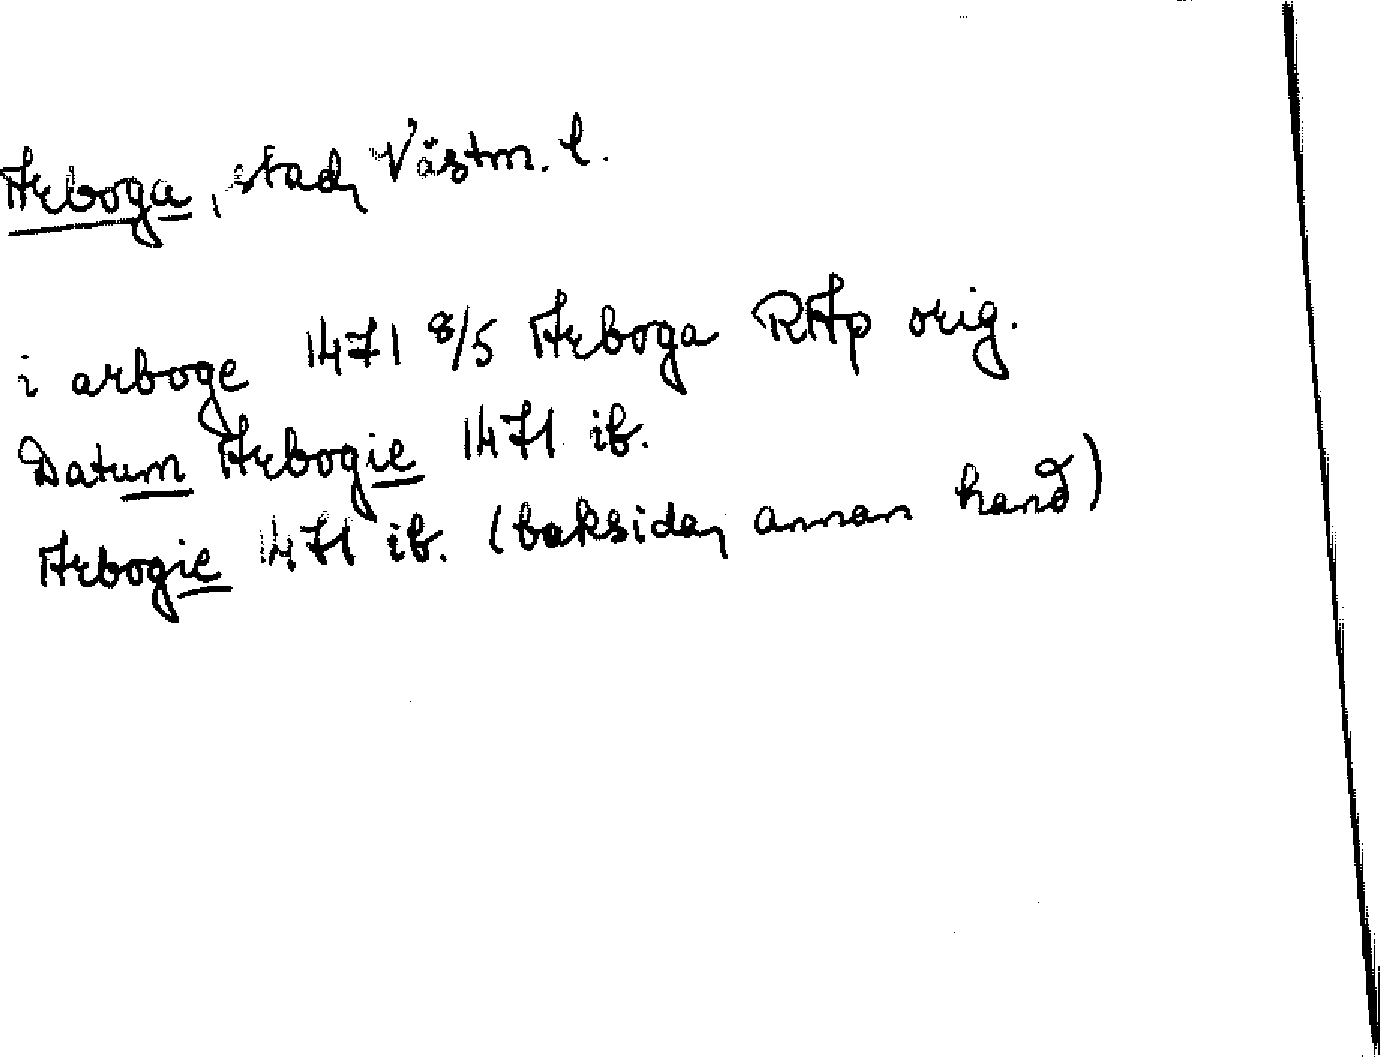 Arboga, stad, Västm. l.
i arboge 1471 8/5 Arboga RAp orig.
Datum Arbogie 1471 ib.
Arbogie 1471 ib. (baksidan annan hand)